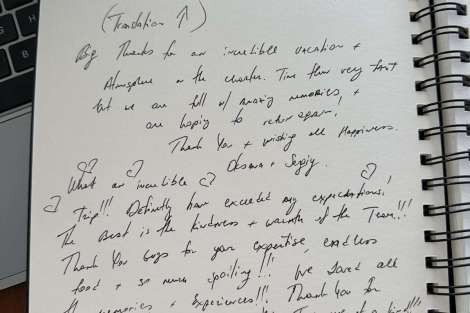 (Translation ↑)
Big Thanks for an incredible vacation +
Atmosphere on the charter. Time flew very fast
but we are full w/ amazing memories +
are hoping to return again!
Thank You + wishing all Happiness.
Sergiy.
What an incredible
Trip!!! Definitly have exceeded my expectations!
The Best is the kindness + warmth of the Team!!!
Thank You Guys for your expertise, endless
food + so much spoiling!!! We loved all
memories + Experiences!!! Thank You for